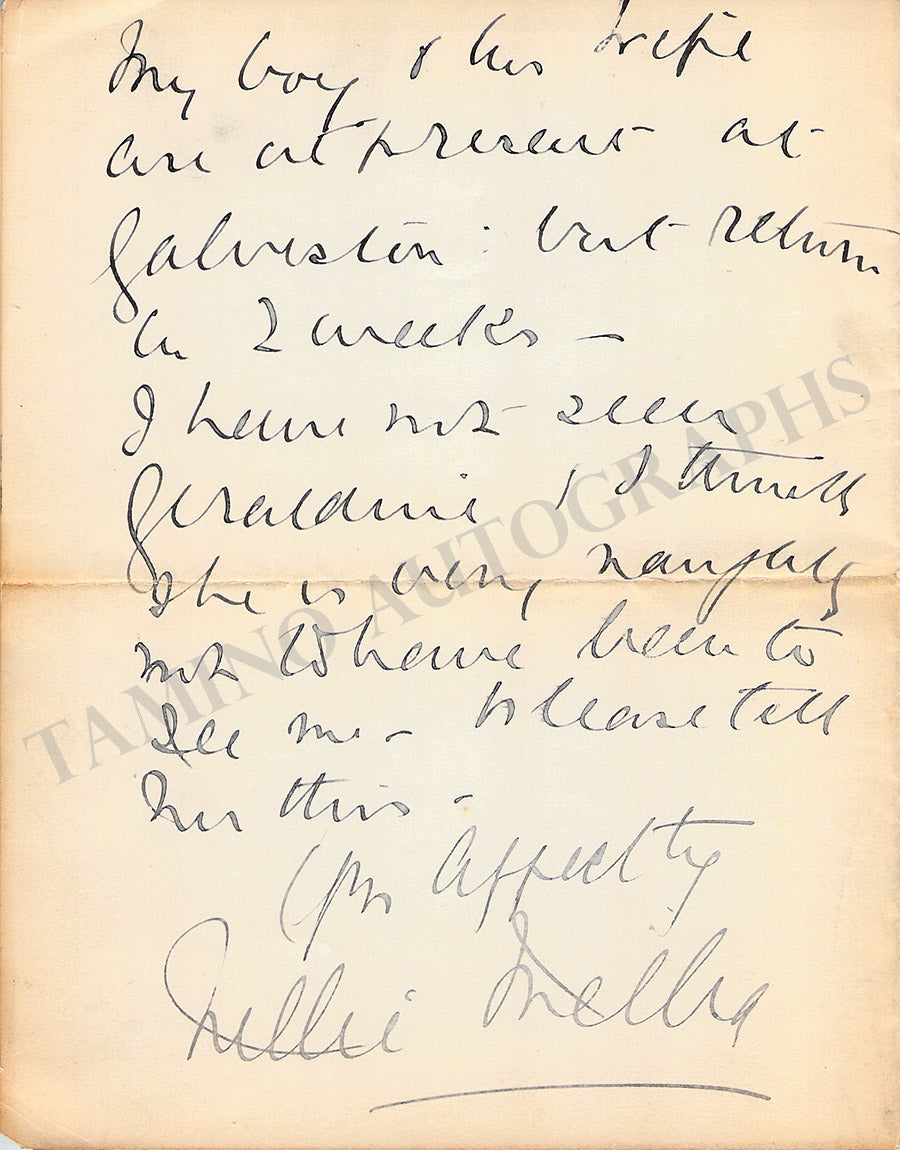 My boy & his wife
are at present at
Galveston : but return
in 2 weeks -
I have not seen
Geraldine & I think
she is very naughty
not to have been to
see me - Please tell
her this -
Yrs Affectly
Nellie Melba
TAMINO AUTOGRAPHS